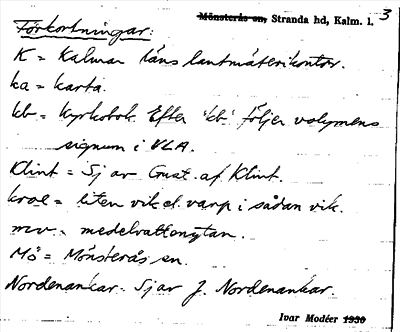 Mönsterås sn, Stranda hd, Kalm. l. 3
Förkortningar:
K = Kalmar läns lantmäterikontor.
ka = karta.
kb = kyrkobok. Efter 'kb' följer volymens
signum i VLA.
Klint = Sj av Gust. af Klint.
kroe = liten vik el. varp i sådan vik.
mv = medelvattenytan.
Mö = Mönsterås sn.
Nordenankar = Sj av J. Nordenankar.
Ivar Modéer 1930